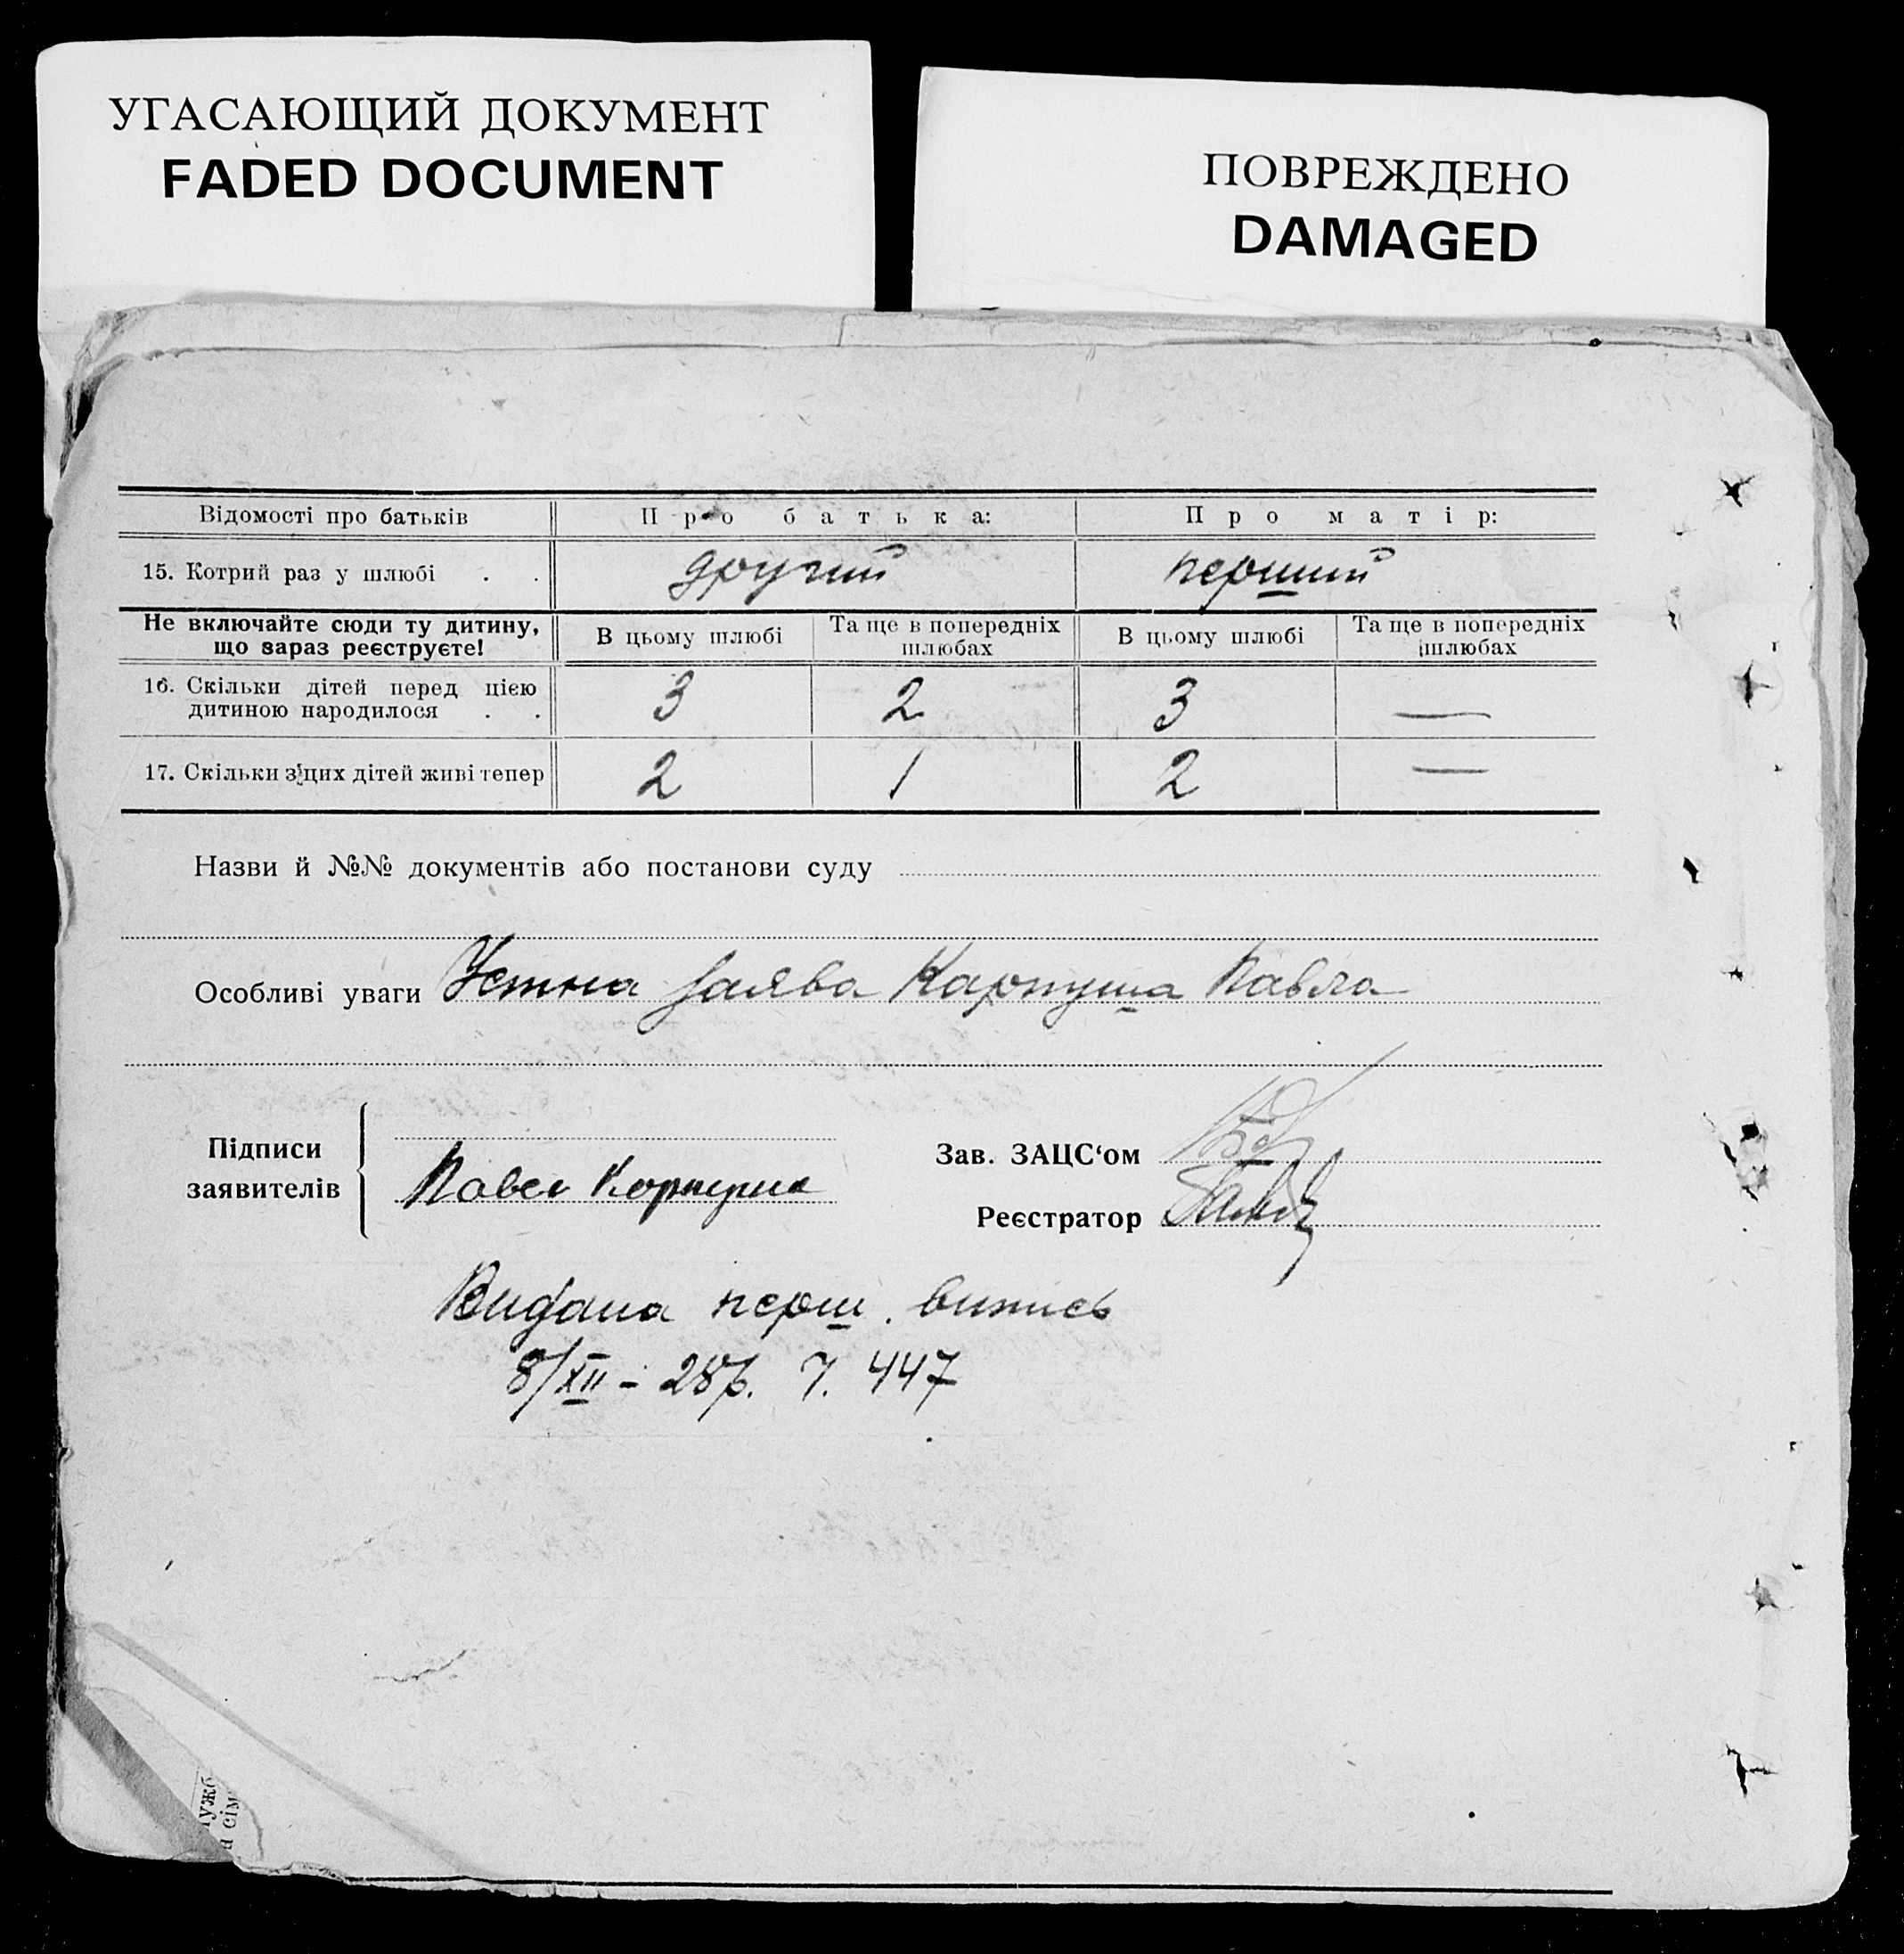 УГАСАЮЩИЙ ДОКУМЕНТ
FADED DOCUMENT
ПОВРЕЖДЕНО
DAMAGED
Відомості про батьків | Про батька: | Про матір:
15. Котрий раз у шлюбі . . другий перший
Не включайте сюди ту дитину, що зараз реєструєте! | В цьому шлюбі | Та ще в попередніх шлюбах | В цьому шлюбі | Та ще в попередніх шлюбах
16. Скільки дітей перед цією дитиною народилося . . 3 2 3 —
17. Скільки з цих дітей живі тепер 2 1 2 —
Назви й №№ документів або постанови суду
Особливі уваги Устна заява Карпуша Павла
Підписи заявителів
Павел Корпуша
Зав. ЗАЦС‘ом
Реєстратор
Видана перш. випись
8/XII - 28р. Ч. 447